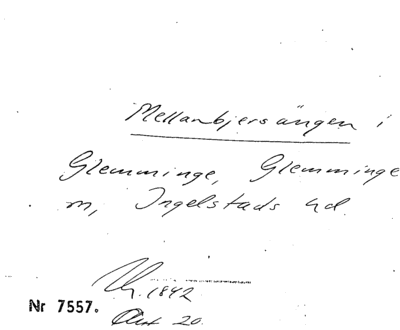 Mellanbjersängen i
Glemminge, Glemminge
m, Ingelstads hd.
1842
Nr 7557.
20.